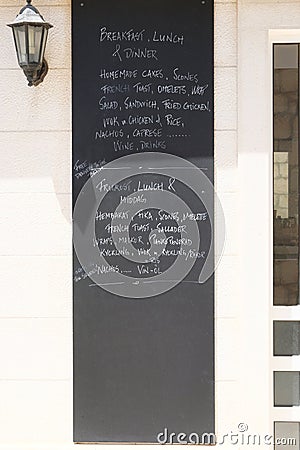 BREAKFAST, LUNCH
& DINNER
HOMEMADE CAKES, SCONES
FRENCH TOAST, OMELETS, WOK
SALAD, SANDWICH, FRIED CHICKEN,
WOK & CHICKEN & RICE,
NACHOS, CAPRESE ........
WINE, DRINKS
FRUKOST, LUNCH &
MIDDAG
HEMBAKAT, FIKA, SCONES, OMELETE
FRENCH TOAST, SALLADER
WRAPS, MACKOR,
KYCKLING, WOK & KYCKLING/RIS
NACHOS, .... VIN-ÖL
dreamstime.com